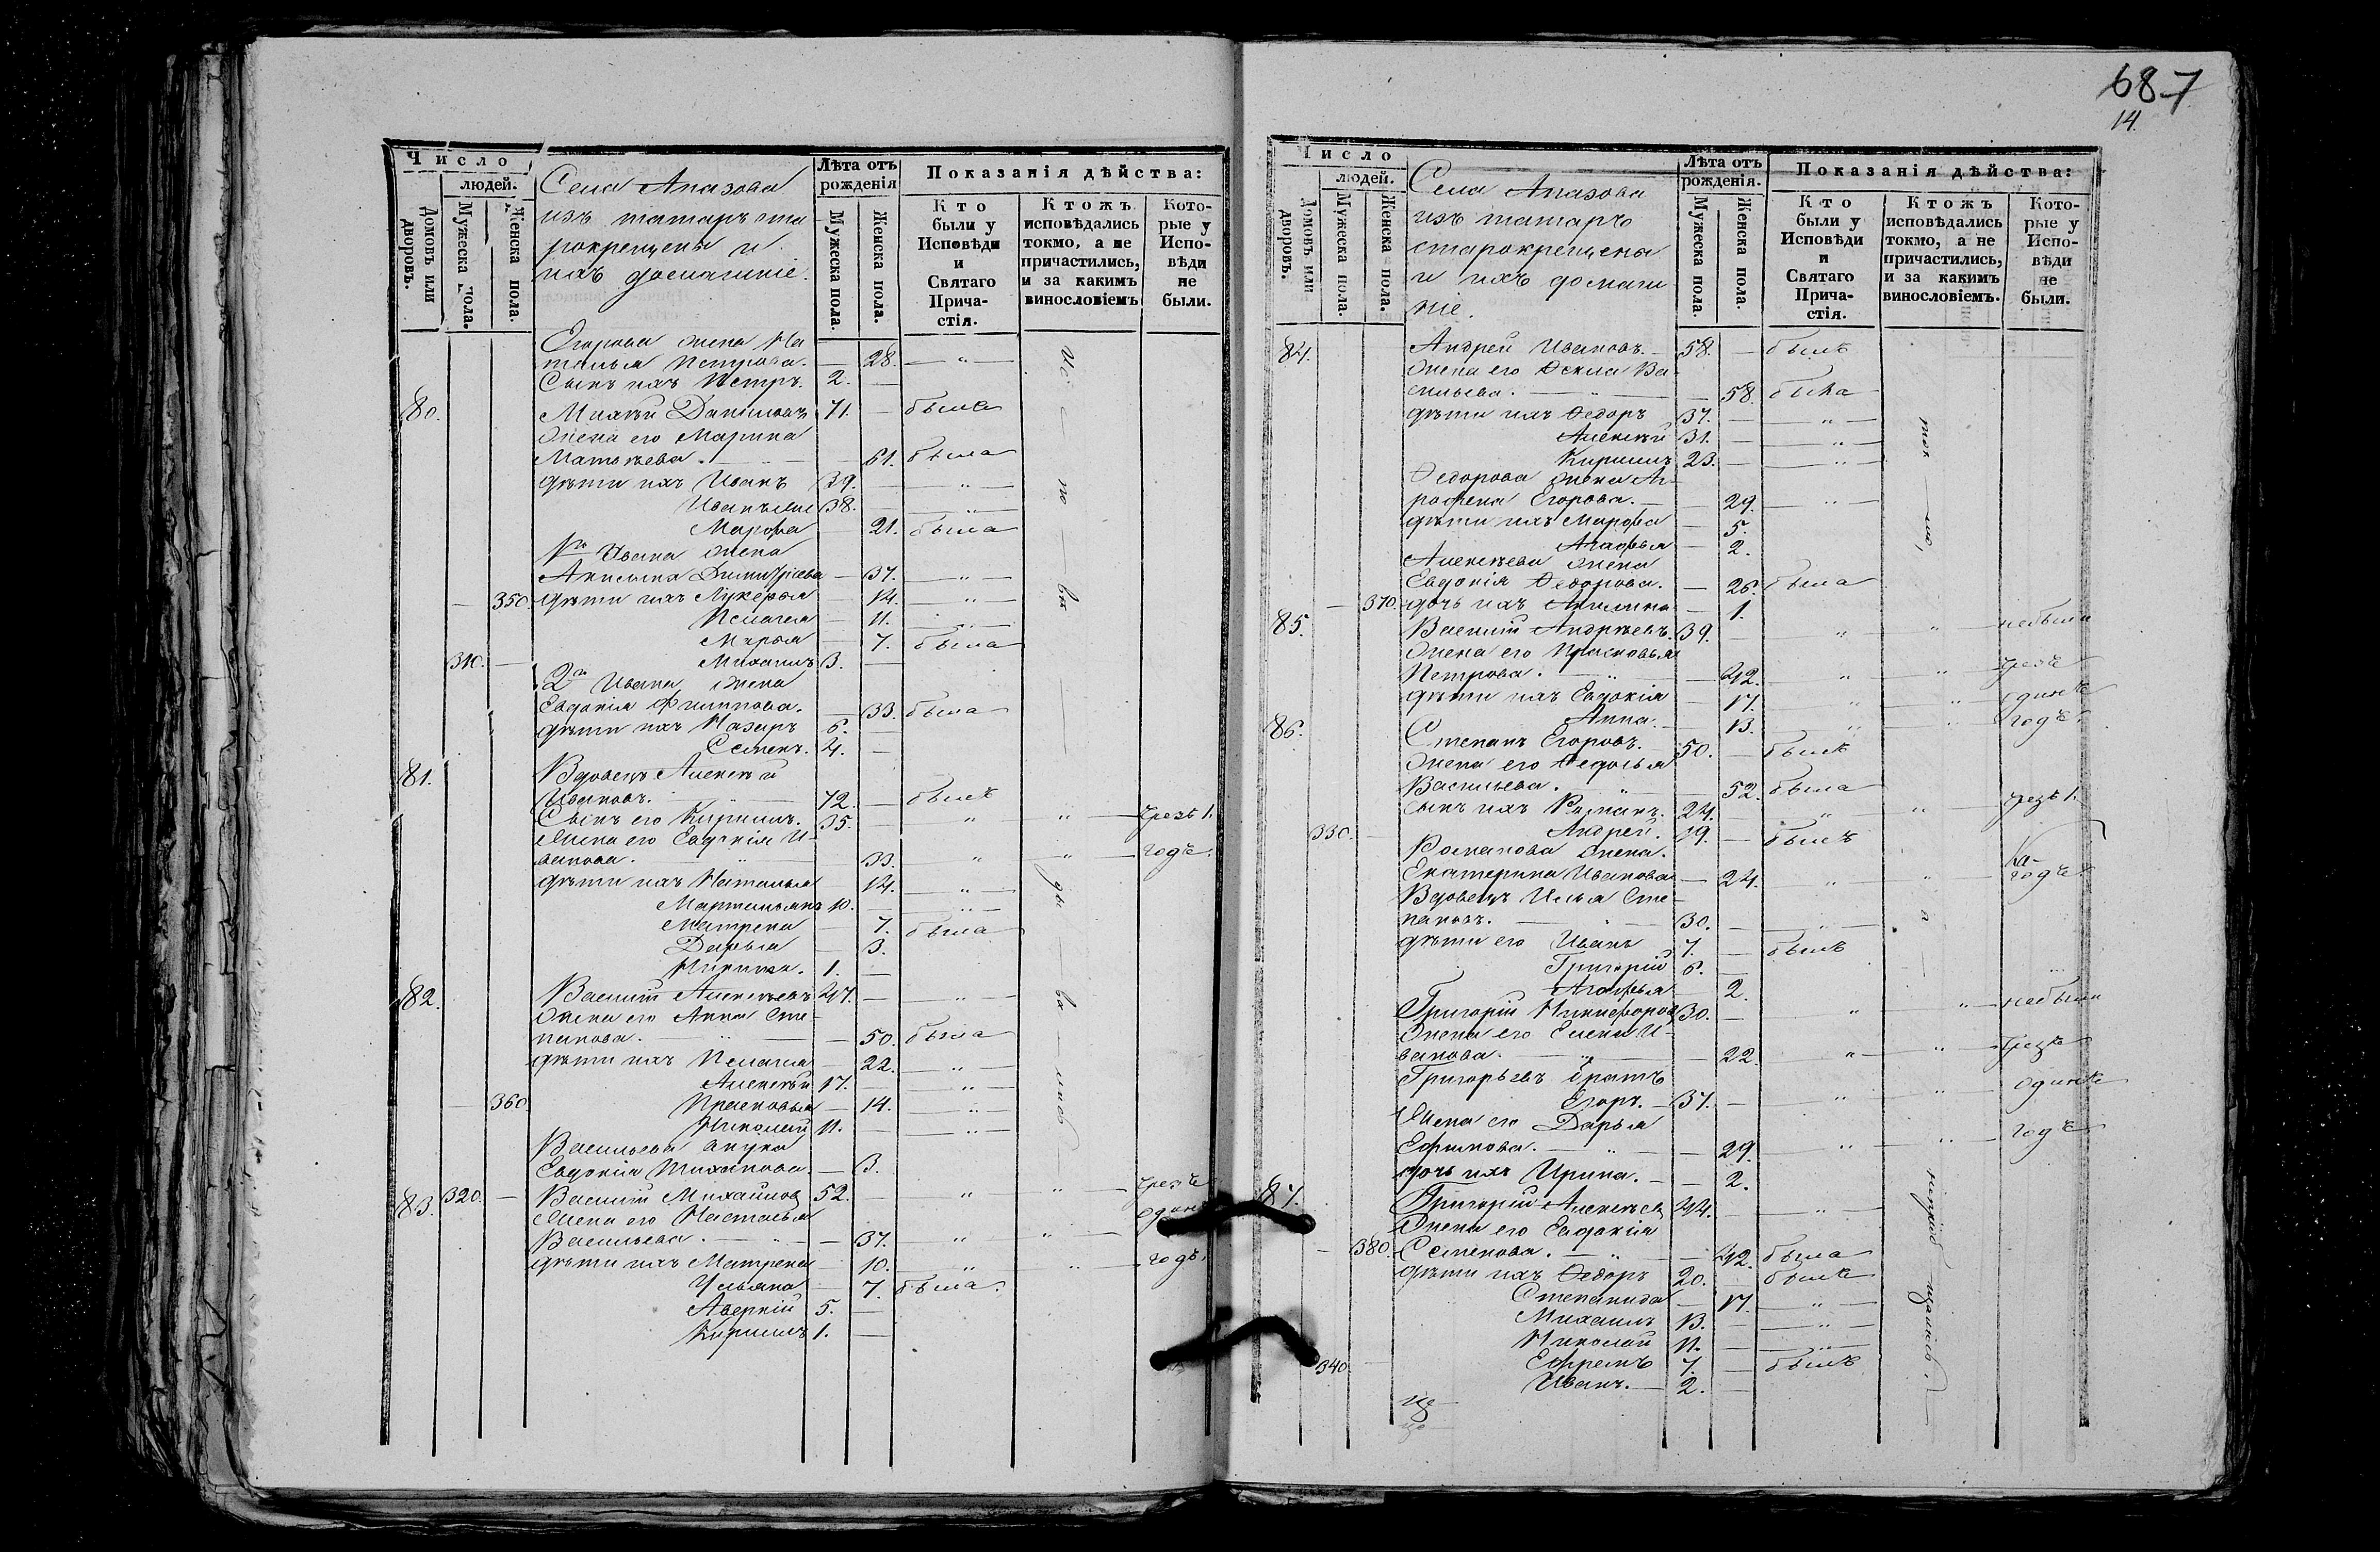 687
14.
Число
людей.
Домовъ или дворовъ.
Мужеска пола.
Женска пола.
Села Апазова
изъ татаръ ста
рокрещены и
ихъ домашніе.
Лѣта отъ
рожденія
Мужеска пола.
Женска пола.
Показанія дѣйства:
Кто
были у
Исповѣди
и
Святаго
Прича-
стія.
Ктожъ
исповѣдались
токмо, а не
причастились,
и за какимъ
винословіемъ
Кото-
рые у
Испо-
вѣди
не
были.
Егорова жена На
талья Петрова. — 28. — „ —
Сынъ ихъ Петръ. 2. —
80. Михей Даниловъ 71. — былъ
Жена его Марина
Матвѣева. — 61. была
дѣти ихъ Иванъ 39. — „ —
Иванъ 38. — „ —
Марфа 21. была
1го Ивана жена
Анисья Димитріева — 37. — „ —
350. дѣти ихъ Лукерья — 14. — „ —
Пелагея — 11. — „ —
Марья — 7. была
310. — Михаилъ 3. —
2го Ивана жена
Евдокія Филиппова. — 33. была
дѣти ихъ Назаръ 6. —
Семенъ. 4. —
81. Вдовецъ Алексѣй
Ивановъ. 72. — былъ
Сынъ его Кириллъ. 35. „ „ — чрезъ 1.
Жена его Евдокія И-
ванова. — „ — 33. „ — „ — годъ.
дѣти ихъ Наталья — 14. — „ —
Мартемьянъ 10. — „ —
Матрена — 7. была
Дарья — 3.
Никита. 1. —
82. Василій Алексѣевъ 47. — „ —
Жена его Анна Сте-
панова. — „ — 50. была
дѣти ихъ Пелагея 22. — „ —
Алексѣй 17. — „ —
360. Прасковья — 14. — „ —
Николай 11. — „ —
Васильева внука
Евдокія Тиханова — 3.
83. 320. — Василій Михайловъ 52. — „ „ — чрезъ
Жена его Настасья одинъ
Васильева. — „ — 37. „ „ —
дѣти ихъ Матрена — 10. „ „ — годъ.
Ульяна — 7. была.
Аверкій 5. —
Кириллъ 1. —
Число
людей.
Домовъ или дворовъ.
Мужеска пола.
Женска пола.
Села Апазова
изъ татаръ
старокрещены
и ихъ домаш
ніе.
Лѣта отъ
рожденія.
Мужеска пола.
Женска пола.
Показанія дѣйства:
Кто
были у
Исповѣди
и
Святаго
Прича-
стія.
Ктожъ
исповѣдались
токмо, а не
причастились,
и за какимъ
винословіемъ.
Кото-
рые у
Испо-
вѣди
не
были.
84. Андрей Ивановъ. — 58. — былъ
Жена его Ѳекла Ва-
сильева. — „ — 58. была
дѣти ихъ Ѳедоръ 37. — „ —
Алексѣй 31. — „ —
Кириллъ 23. — „ —
Ѳедорова жена Аг-
рафена Егорова. — 29. — „ —
дѣти ихъ Марфа — 5.
Агафья — 2.
Алексѣева жена
Евдокія Ѳедорова. — 26. была
— 370. дочь ихъ — 1.
85. Василій Андреевъ. 39. — „ „ — небыли
Жена его Прасковья
Петрова. „ — 42. „ „ чрезъ
дѣти ихъ Евдокія — 17. „ „ одинъ
Анна. — 13. „ „ годъ.
86. Степанъ Егоровъ. 50. — былъ
Жена его Ѳедосья
Васильева. „ — 52. была
сынъ ихъ Романъ. 24. — „ „ — чрезъ 1.
330. — Андрей. 19. — былъ
Романова жена.
Екатерина Иванова — 24. „ „ годъ
Вдовецъ Илья Сте-
пановъ. — „ — 30. — „ —
дѣти его Иванъ 7. — былъ
Григорій 6. —
Агафья — 2.
Григорій Никифоровъ 30. — „ „ — небыли
Жена его Елена И-
ванова. — „ — 22. „ — „ — чрезъ
Григорьевъ братъ
Егоръ. — 37. — „ „ одинъ
Жена его Дарья
Ефимова. — „ — 29. „ „ — годъ
дочь ихъ Ирина. — 2.
87. Григорій Алексѣевъ 44. — „ —
Жена его Евдокія
— 380. Семенова. — „ — 42. была
дѣти ихъ Ѳедоръ 20. — былъ
Степанида — 17. — „ —
Михаилъ 13. — „ —
Николай 11. — „ —
340. — Ефремъ 7. — былъ
Иванъ. — 2. —